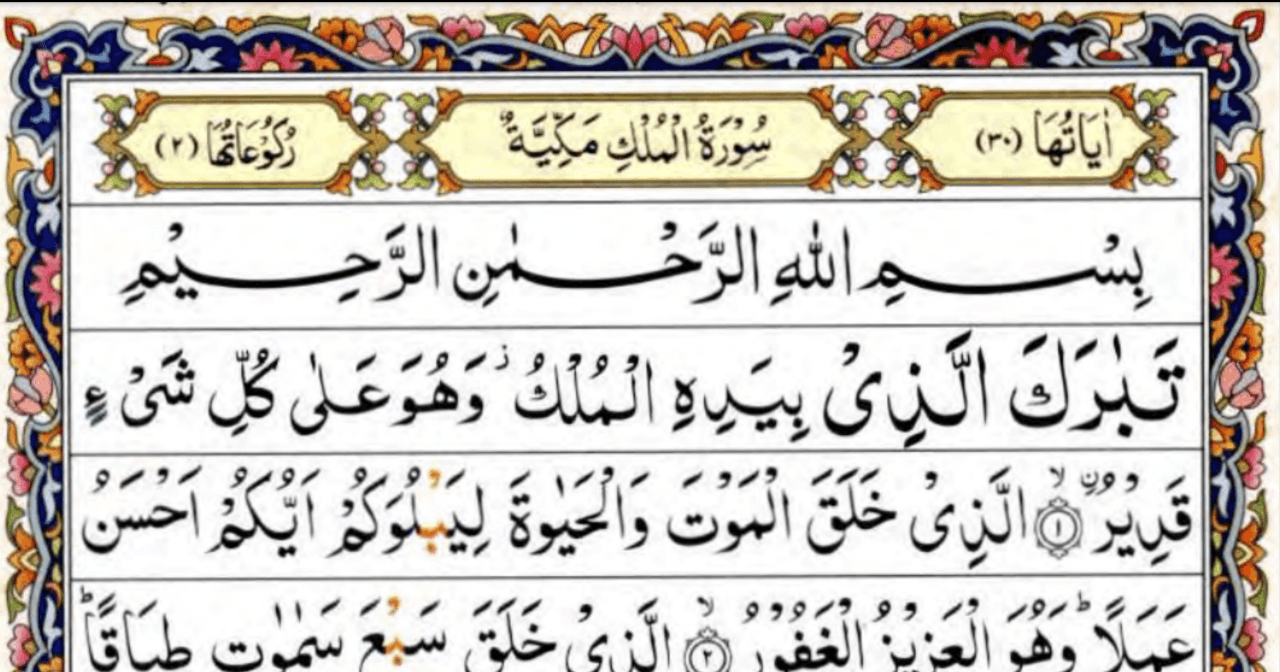 اٰيَاتُهَا (٣٠) سُوْرَةُ الْمُلْكِ مَكِّيَّةٌ رُكُوْعَاتُهَا (٢)
بِسْمِ اللهِ الرَّحْمٰنِ الرَّحِيْمِ
تَبٰرَكَ الَّذِىْ بِيَدِهِ الْمُلْكُ ز وَهُوَ عَلٰى كُلِّ شَىْءٍ
قَدِيْرُ ۨ ۙ ﴿١﴾ الَّذِىْ خَلَقَ الْمَوْتَ وَالْحَيٰوةَ لِيَبْلُوَكُمْ اَيُّكُمْ اَحْسَنُ
عَمَلًا ؕ وَهُوَ الْعَزِيْزُ الْغَفُوْرُ ۙ ﴿٢﴾ الَّذِىْ خَلَقَ سَبْعَ سَمٰوٰتٍ طِبَاقًا ؕ